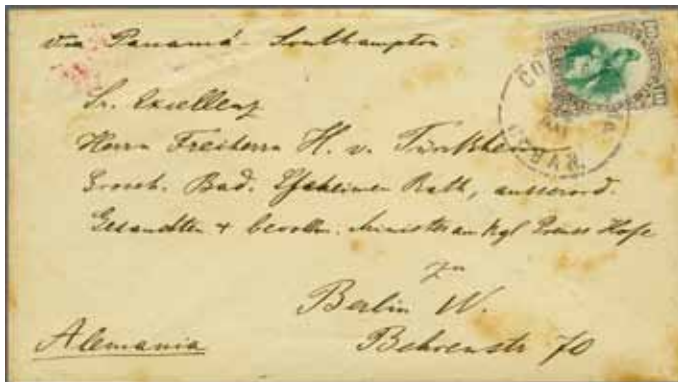 via Panamá - Southampton
Sr. Excellenz
Herrn Freiherrn H. v. Türckheim
Grossh. Bad. Geheimen Rath, ausserord.
Gesandten + bevollm. Minister am Kgl Preuss Hofe
zu
Berlin W.
Behrenstr 70
Alemania